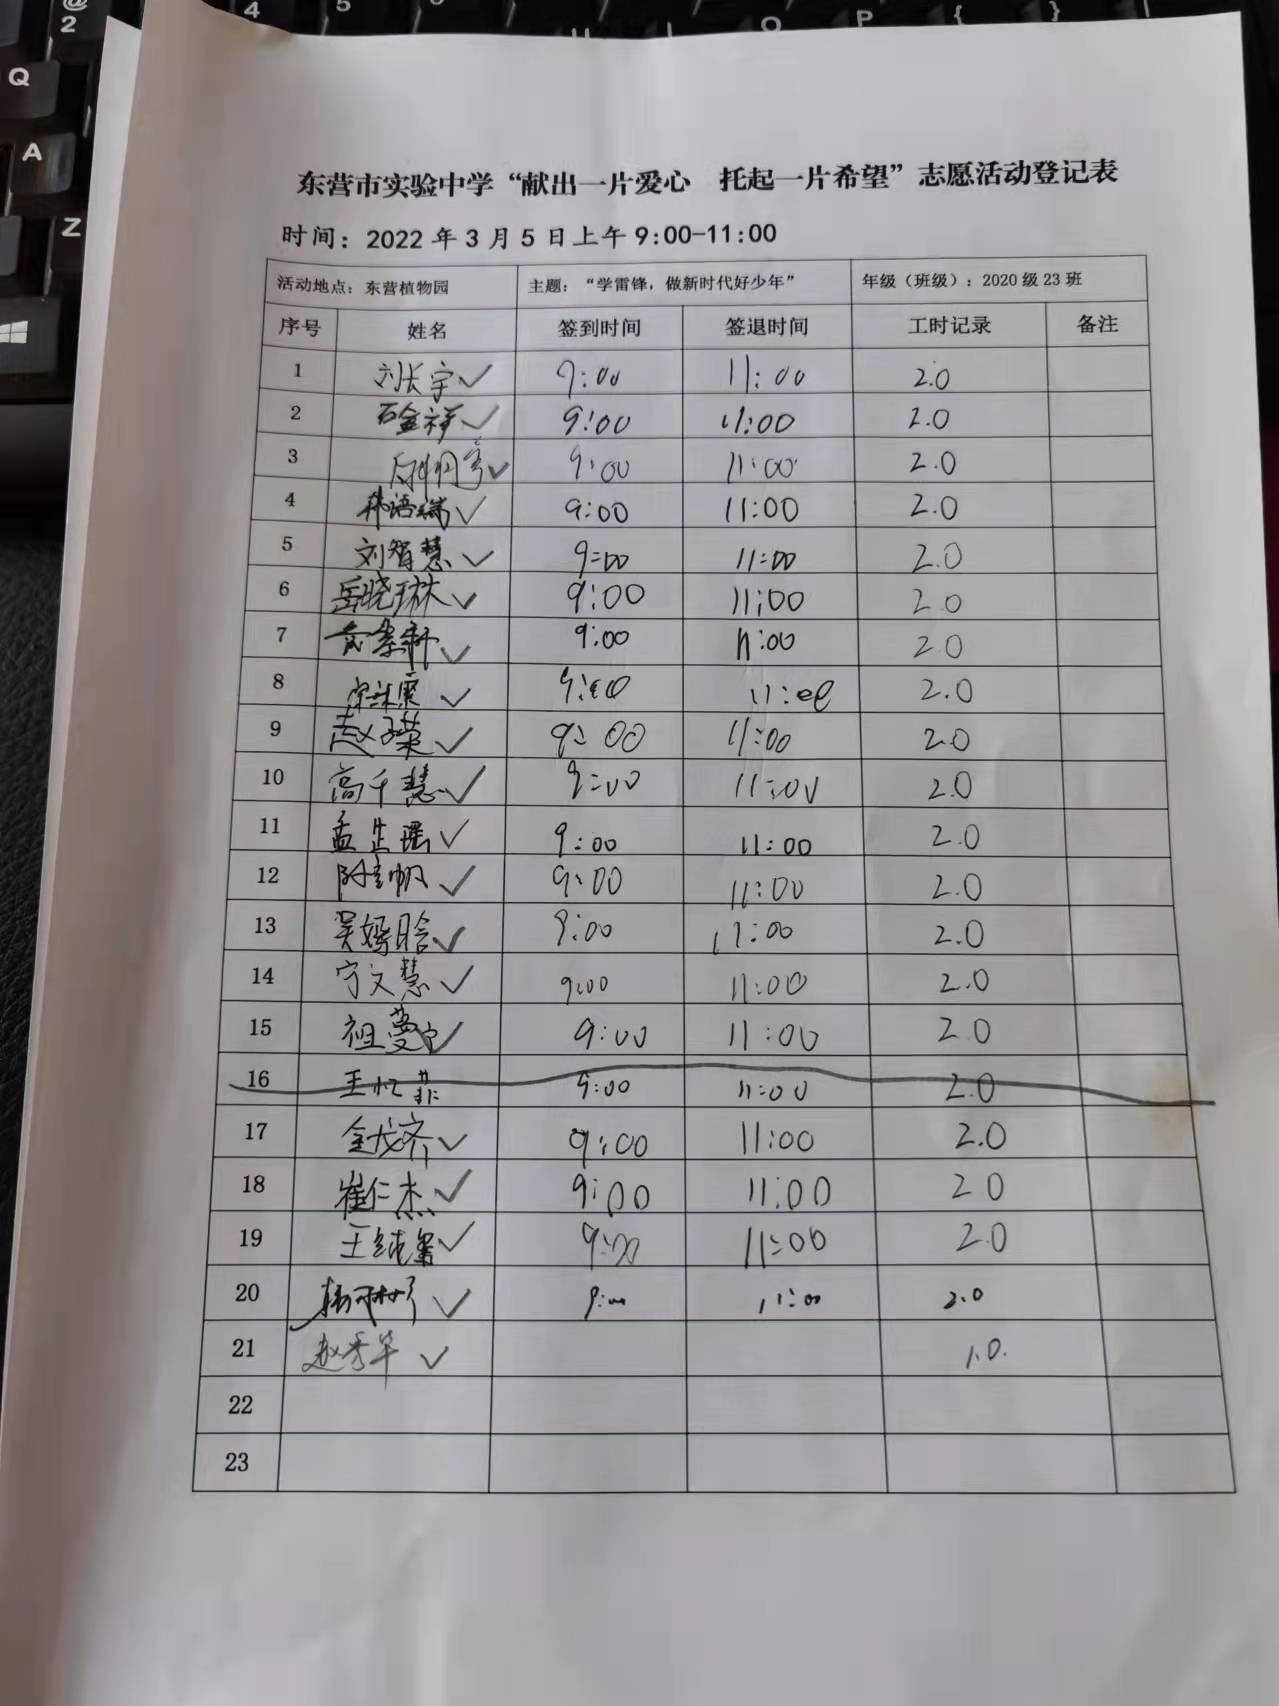 东营市实验中学“献出一片爱心 托起一片希望”志愿活动登记表
时间：2022年3月5日上午9:00-11:00
活动地点：东营植物园 主题：“学雷锋，做新时代好少年” 年级（班级）：2020级23班
序号 姓名 签到时间 签退时间 工时记录 备注
1 刘长宇 9:00 11:00 2.0
2 石金祥 9:00 11:00 2.0
3 9:00 11:00 2.0
4 韩语瑞 9:00 11:00 2.0
5 刘智慧 9:00 11:00 2.0
6 岳晓琳 9:00 11:00 2.0
7 9:00 11:00 2.0
8 9:00 11:00 2.0
9 赵子荣 9:00 11:00 2.0
10 高千慧 9:00 11:00 2.0
11 孟 瑶 9:00 11:00 2.0
12 9:00 11:00 2.0
13 吴嫣晗 9:00 11:00 2.0
14 宁文慧 9:00 11:00 2.0
15 祖蔓宁 9:00 11:00 2.0
16 王忆菲 9:00 11:00 2.0
17 金戈齐 9:00 11:00 2.0
18 崔仁杰 9:00 11:00 2.0
19 9:00 11:00 2.0
20 9:00 11:00 2.0
21 赵秀华 1.0.
22
23
@
2
4
5
Q
A
Z
U
I
O
P
{
}